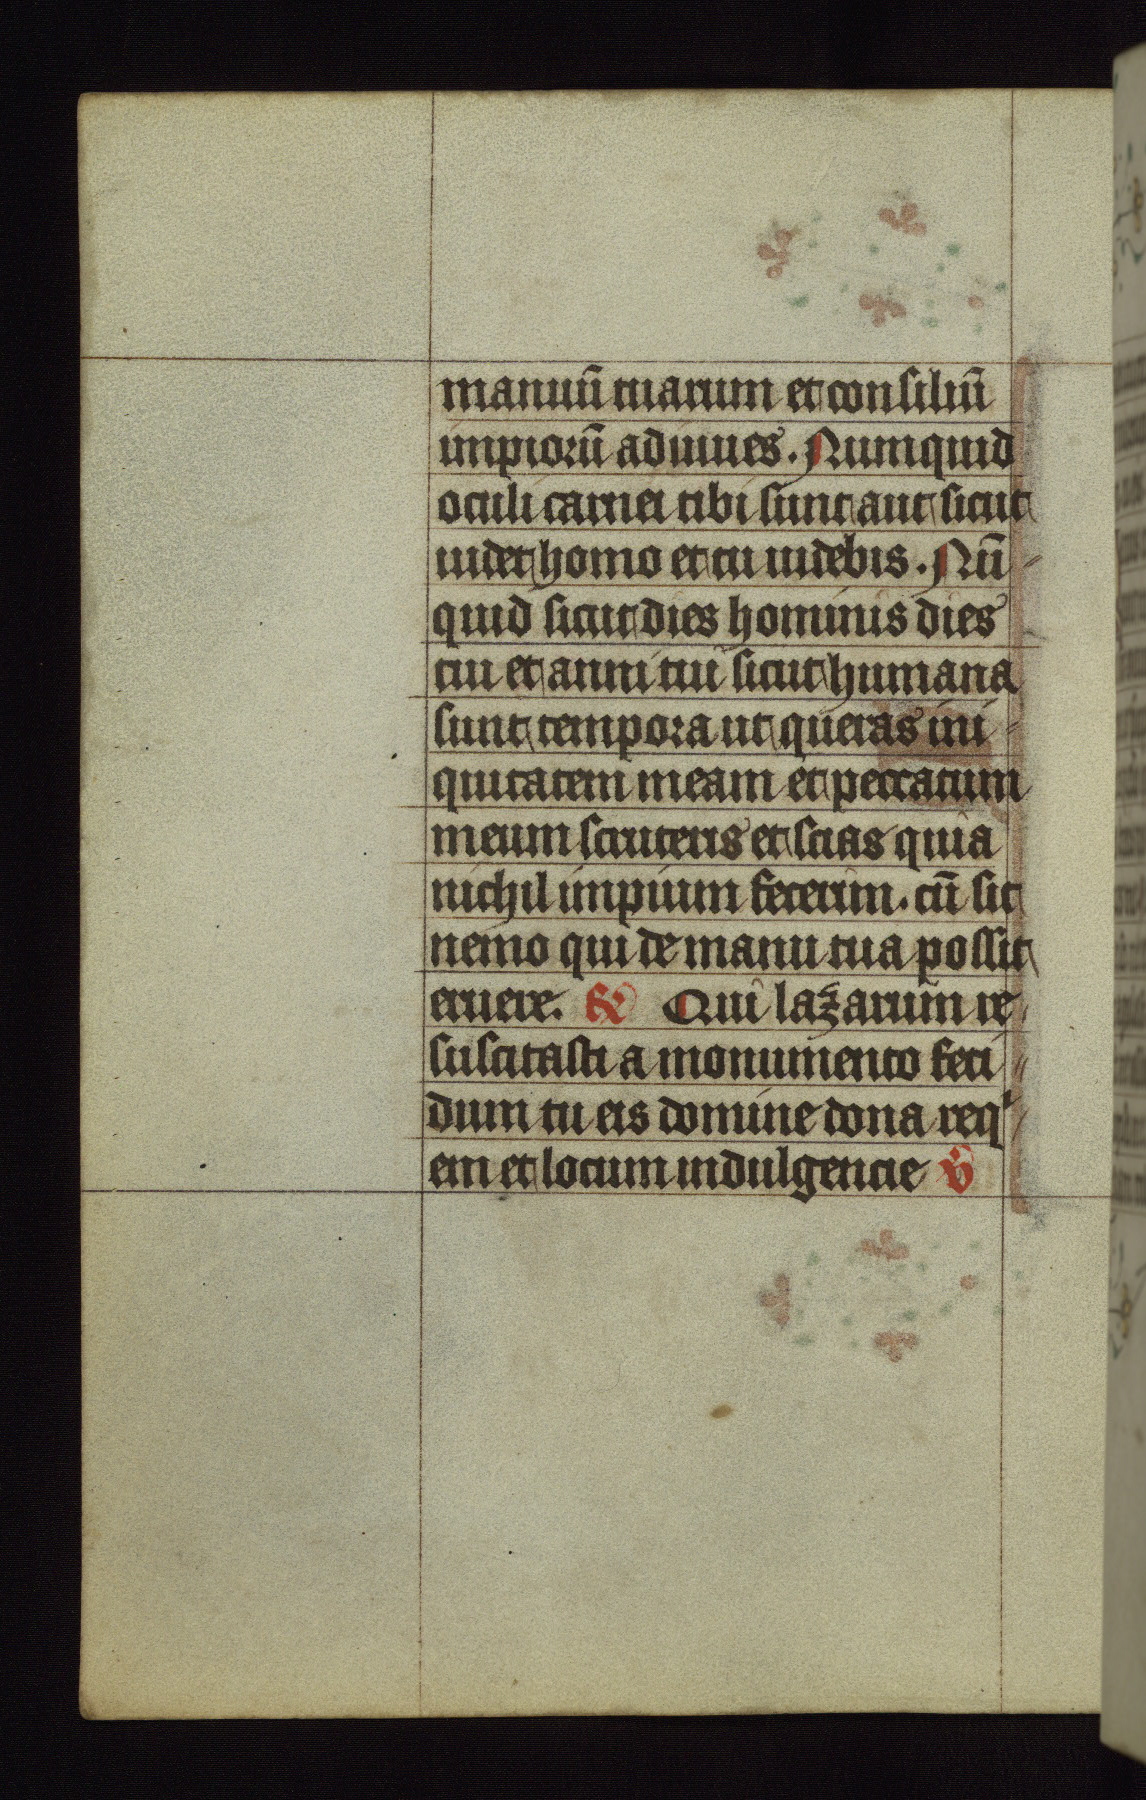 manuū tuarum et consiliū
impiorū adiuues. Numquid
oculi carnei tibi sunt aut sicut
uidet homo et tu uidebis. Nū-
quid sicut dies hominis dies
tui et anni tui sicut humana
sunt tempora ut queras ini-
quitatem meam et peccatum
meum scruteris et scias quia
nichil impium fecerim. cū sit
nemo qui de manu tua possit
eruere. ℟ Qui lazarum re-
suscitasti a monumento feti-
dum tu eis domine dona reqⁱ-
em et locum indulgencie ℣